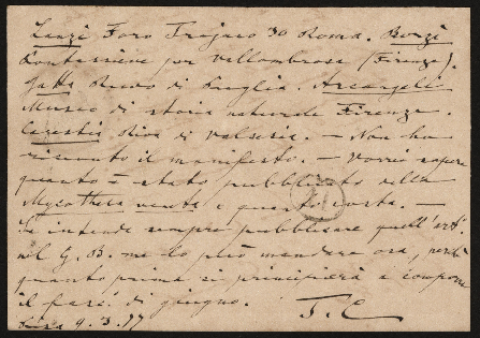 Lanzi Foro Trajano 30 Roma. Bonzi
Pontassieve per Vallombrosa (Firenze).
Jatta Ruvo di Puglia. Arcangeli
Museo di storia naturale Firenze.
Carestia Riva di Valsesia. — Non ho
ricevuto il manifesto. — Vorrei sapere
quanto è stato pubblicato della
Mycotheca veneta e quanto costa. —
Se intende sempre pubblicare quell'art.
nel G. B. me lo può mandare ora, perchè
quanto prima si principierà a comporre
il fasc. di giugno.
T. C
9.3.77